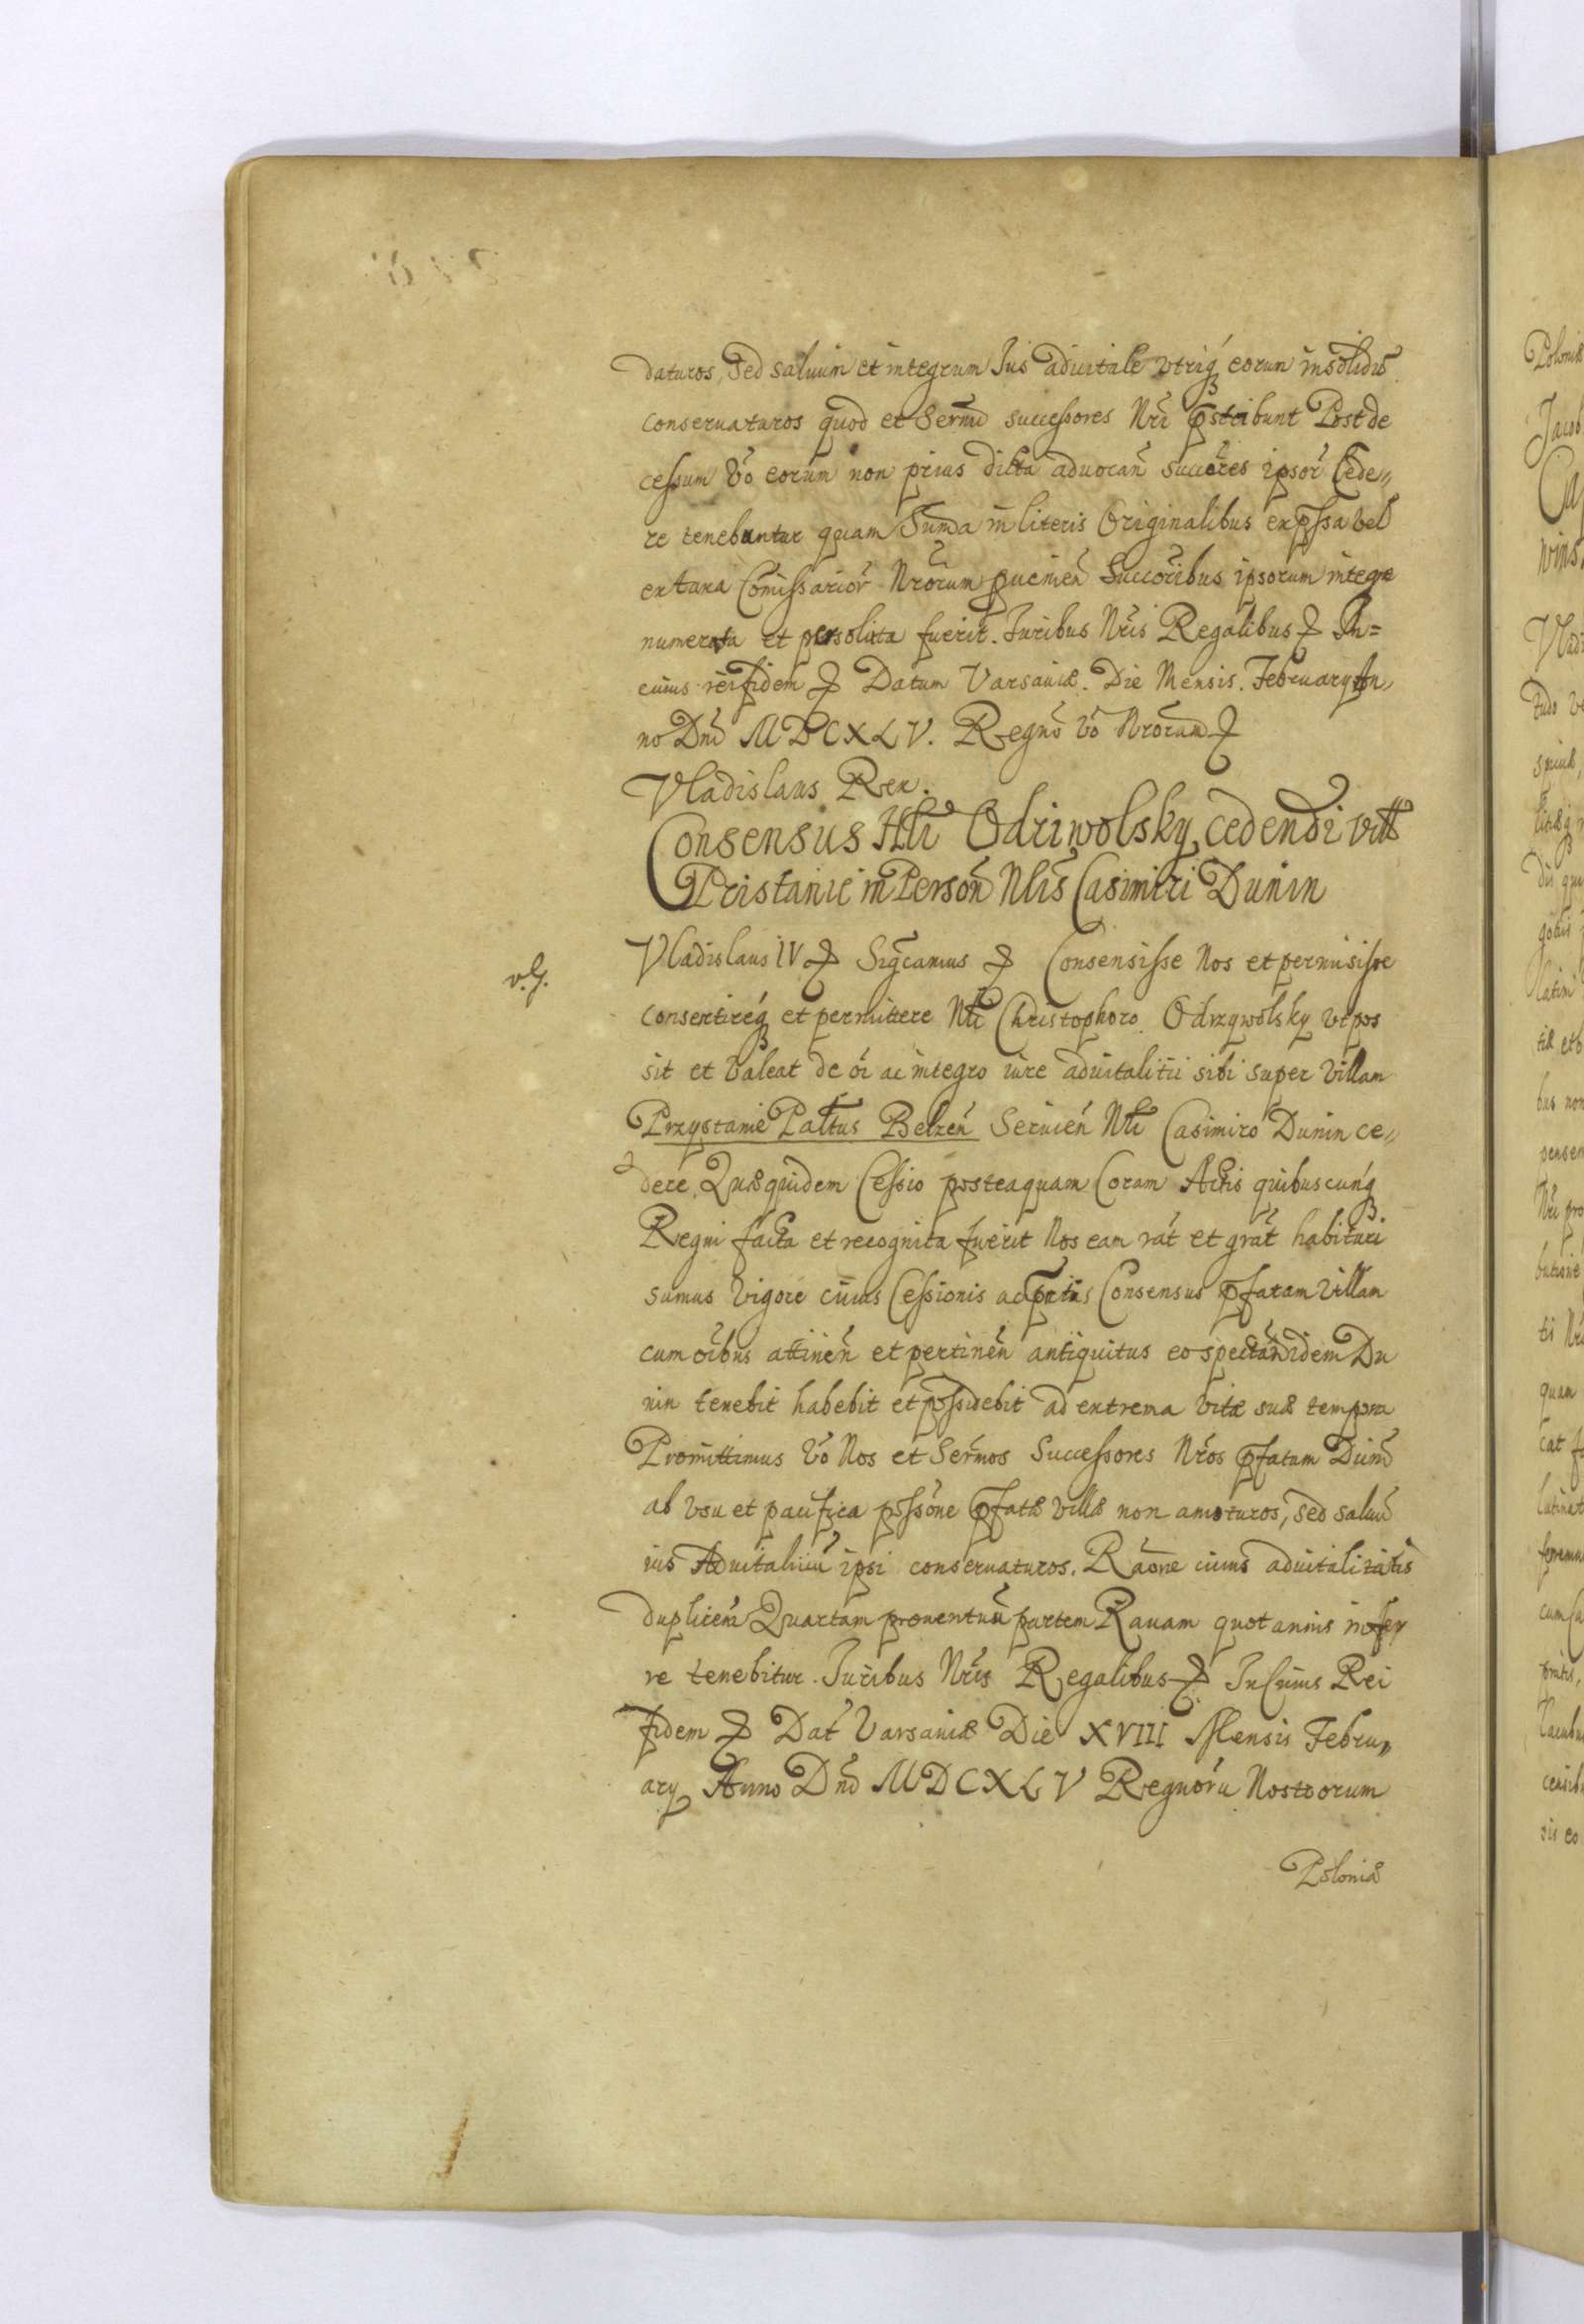 daturos, Sed saluum et integrum Ius aduitale vtriq́ eorum insolidū
conseruaturos quod et Sermī successores Nrī pstabunt Post de
cessum vo eorum non prius dicta aduocan̄ succores ipsor̄ Cede„
re tenebuntur quam Suma in literis Originalibus expssa vel
ex taxa Comissarior̄ Nrorum puenien̄ Succoribus ipsorum integre
numerata et persoluta fuerit. Iuribus Nrīs Regalibus In=
cuius rei fidem Datum Varsauiæ. Die Mensis. February An„
no Dnī MDCXLV. Regnō vo Nrorum
Vladislaus Rex.
Consensus Odriwolsky cedendi vill
Pristanie in Person̄ Nlīs Casimiri Dunin
Vladislaus IV Sigcamus Consensisse Nos et permisisse
consentireq́ et permittere Nlī Christophoro Odrzywolsky vt pos
sit et valeat de oī ac integro iure aduitalitii sibi super Villam
Przystanie Pāltus Belzen̄ Seruien̄ Nlī Casimiro Dunin ce„
dere, Quæquidem Cessio posteaquam Coram Actis quibuscunq́
Regni facta et recognita fuerit Nos eam rāt et grāt habituri
sumus Vigore cuius Cessionis ac pntis Consensus pfatam Villam
cum oībus attinēn et pertinēn antiquitus eo spectān idem Du
nin tenebit habebit et possidebit ad extrema vitæ suæ tempora
Promittimus vo Nos et Sermos Successores Nros pfatum Dunī
ab vsu et pacifica pssōne pfatæ villæ non amoturos, sed saluū
ius Aduitalitiū ipsi conseruaturos. Raōne cuius aduitalitatis
duplicem Quartam prouentuū partem Rauam quotannis infer
re tenebitur. Iuribus Nrīs Regalibus In Cuius Rei
fidem Dat Varsauiæ Die XVIII Mensis Febru„
ary Anno Dnī MDCXLV Regnorū Nostrorum
Poloniæ